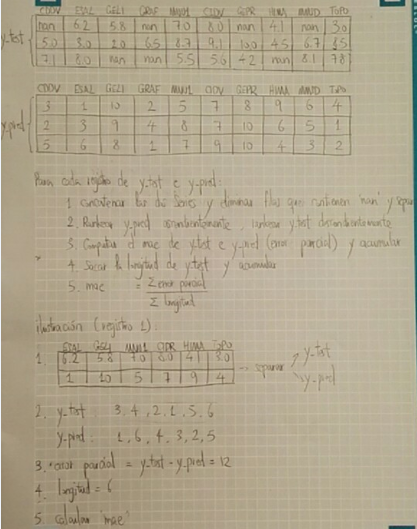 CDDV ESAL GEL1 GRAF MMN1 CIDV GIPR HUMA MMUD TOPO
nan 6.2 5.8 nan 7.0 8.0 nan 4.1 nan 3.0
y_test 5.0 3.0 2.0 6.5 8.7 9.1 10.0 4.5 6.7 3.5
7.1 8.0 nan nan 5.5 5.6 4.2 nan 8.1 7.8
CDDV ESAL GEL1 GRAF MMN1 CIDV GIPR HUMA MMUD TOPO
3 1 10 2 5 7 8 9 6 4
y_pred 2 3 9 4 8 7 10 6 5 1
5 6 8 1 7 9 10 4 3 2
Para cada registro de y_test e y_pred:
1. concatenar las dos series y eliminar filas que contienen 'nan' y separar
2. Rankear y_pred ascendentemente, rankear y_test descendientemente
3. Computar el mae de y_test e y_pred (error parcial) y acumular
4. Sacar la longitud de y_test y acumular
5. mae = Σ error parcial
Σ longitud
ilustración (registro 1)
ESAL GEL1 MMN1 GIPR HUMA TOPO
1. 6.2 5.8 7.0 8.0 4.1 3.0 y_test
1 10 5 7 9 4 → separar y_pred
2. y_test 3, 4, 2, 1, 5, 6
y_pred: 1, 6, 4, 3, 2, 5
3. error parcial = y_test - y_pred = 12
4. longitud = 6
5. calcular 'mae'